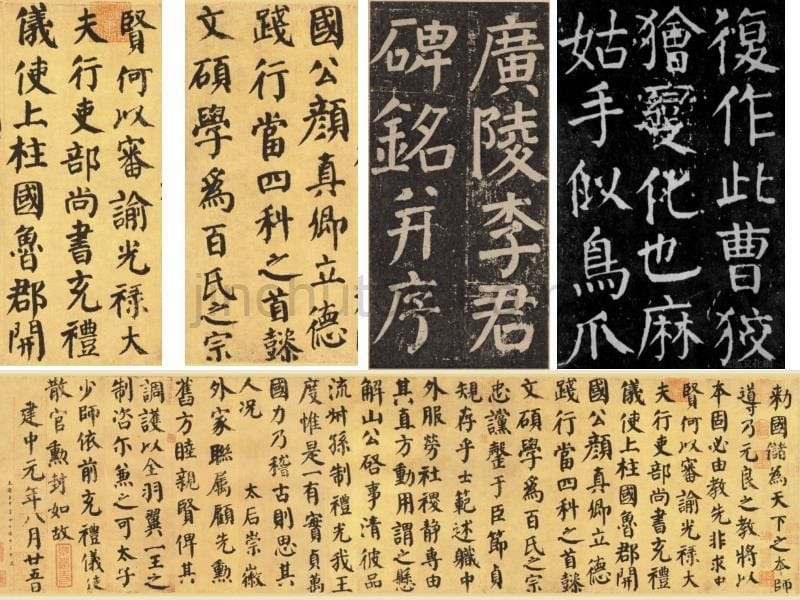 賢何以審諭光祿大
夫行吏部尚書充禮
儀使上柱國魯郡開
國公顏真卿立德
踐行當四科之首懿
文碩學為百氏之宗
廣陵李君
碑銘并序
復作此曹狡
獪變化也麻
姑手似鳥爪
勑國儲為天下之本師
導乃元良之教將以
本固必由教先非求中
賢何以審諭光祿大
夫行吏部尚書充禮
儀使上柱國魯郡開
國公顏真卿立德
踐行當四科之首懿
文碩學為百氏之宗
忠讜罄于臣節貞
規存乎士範述職中
外服勞社稷靜專由
其直方動用謂之懸
解山公啓事清彼品
流叔孫制禮光我王
度惟是一有實貞萬
國力乃稽古則思其
人況 太后崇徽
外家聯屬顧先勳
舊方睦親賢俾其
調護以全羽翼一王之
制咨尔兼之可太子
少師依前充禮儀使
散官勳封如故
建中元年八月廿五日